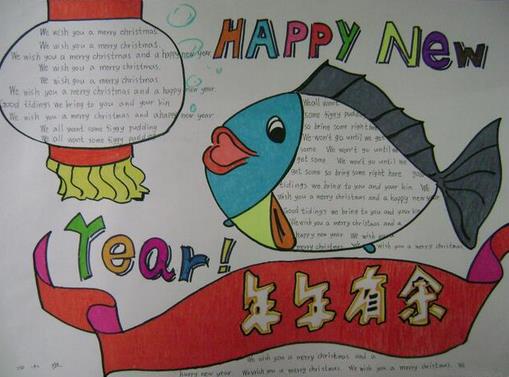 HAPPY New
Year!
年年有余
We wish you a merry christmas.
We wish you a merry christmas.
We wish you a merry christmas and a happy new year.
We wish you a merry christmas.
We wish you a merry christmas
We wish you a merry christmas and a happy new year.
Good tidings we bring to you and your kin
We wish you a merry christmas and a happy new year
We all want some figgy pudding
We all want some figgy pudding
We all want
some figgy pudding
so bring some right here
We won't go until we get
some We won't go until we
got some We won't go until we
get some so bring some right here
tidings we bring to you and your kin We
wish you a merry christmas and a happy new year
Good tidings we bring to you and your kin
We wish you a merry christmas and a
happy new year. We wish you a
merry christmas. We wish you a merry christmas
We wish you a merry christmas and a
happy new year. We wish you a merry christmas. We wish you a merry christmas. We